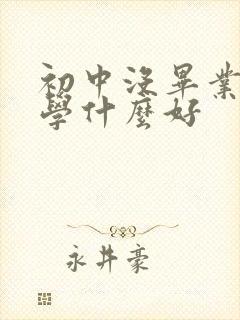 初中没畢業
學什麼好
永井豪